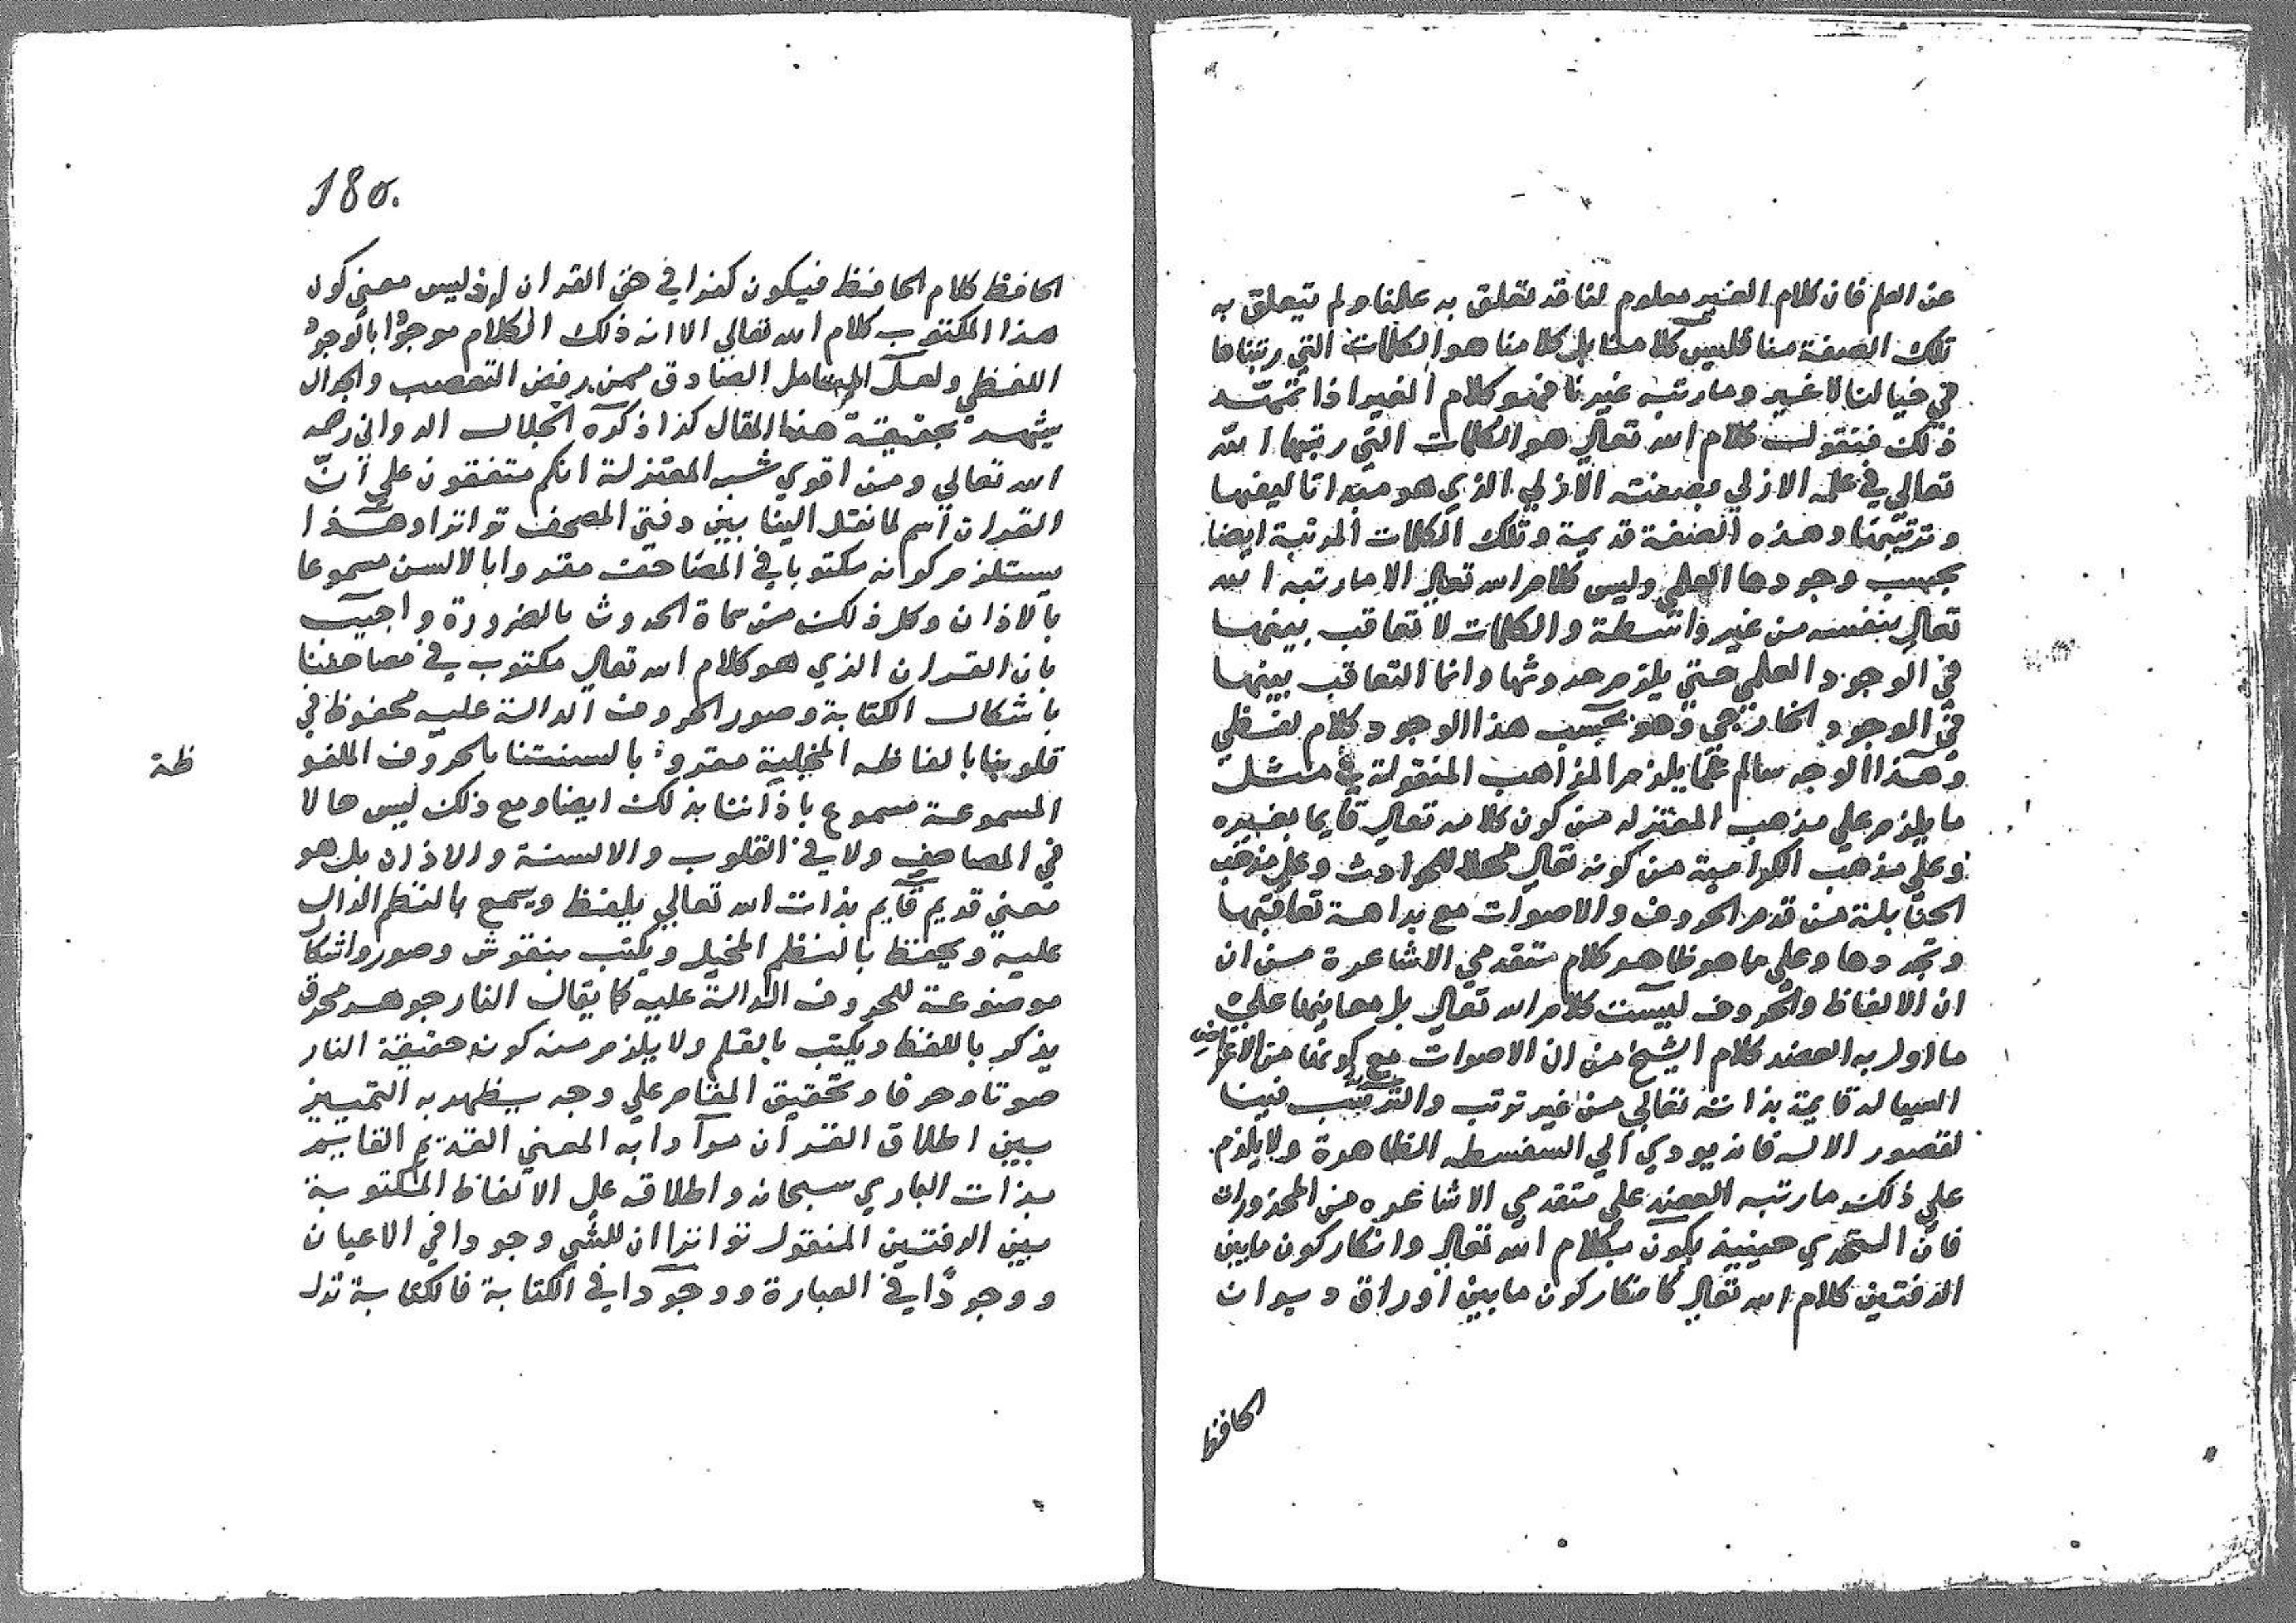 عن العلم فان كلام الغير معلوم لنا قد تعلق به علمنا ولم يتعلق به
تلك الصفة منا فليس كلا منا بل كلامنا هو الكلمات التي رتبناها
في خيالنا لا غير وما رتبه غيرنا فهو كلام الغير اذا تمهد
ذلك فنقول كلام الله تعالي هو الكلمات التي رتبها الله
تعالي في علمه الازلي بصفته الازلية الذي هو مبدا تاليفها
وترتيبها وهذه الصفة قديمة وتلك الكلمات المرتبة ايضا
بحسب وجودها العلمي وليس كلام الله تعالي الا ما رتبه الله
تعالي بنفسه من غير واسطة والكلمات لا تعاقب بينها
في الوجود العلمي حتي يلزم حدوثها وانما التعاقب بينها
في الوجود الخارجي وهو بحسب هذا الوجود كلام لفظي
وهذا الوجه سالم عما يلزم المذاهب المنقولة في مثل
ما يلزم علي مذهب المعتزله من كون كلامه تعالي قايما بغيره
وعلي مذهب الكرامية من كونه تعالي محلا للحوادث وعلي مذهب
الحنابلة من قدم الحروف والاصوات مع بداهة تعاقبها
وتجددها وعلي ما هو ظاهر كلام متقدمي الاشاعرة من ان
ان الالفاظ والحروف ليست كلام الله تعالي بل معانيها علي
ما اول به العضد كلام الشيخ من ان الاصوات مع كونها من الاعراض
السيالة قايمة بذاته تعالي من غير ترتب والترتب فينا
لقصور الالة فانه يودي الي السفسطه الظاهرة ولا يلزم
علي ذلك ما رتبه العضد علي متقدمي الاشاعره من المحذورات
فان التحدي حينيذ يكون بكلام الله تعالي وانكار كون ما بين
الدفتين كلام الله تعالي كانكار كون ما بين اوراق ديوان
الحافظ
180.
الحافظ كلام الحافظ فيكون كفرا في حق القران اذ ليس معني كون
هذا المكتوب كلام الله تعالي الا انه ذلك الكلام موجودا بالوجود
اللفظي ولعل المتامل الصادق ممن رفض التعصب والجدال
يشهد بحقيقة هذا المقال كذا ذكره الجلال الدواني رحمه
الله تعالي ومن اقوي شبه المعتزلة انكم متفقون علي انّ
القران اسم لما نقل الينا بين دفتي المصحف تواترا وهذا
يستلزم كونه مكتوبا في المصاحف مقروا بالالسن مسموعا
بالاذان وكل ذلك من سماة الحدوث بالضرورة واجيب
بان القران الذي هو كلام الله تعالي مكتوب في مصاحفنا
باشكال الكتابة وصور الحروف الدالة عليه محفوظ في
قلوبنا بالفاظه المخيلة مقروء بالسنتنا بالحروف الملفو
ظة
المسموعة مسموع باذاننا بذلك ايضا ومع ذلك ليس حالا
في المصاحف ولا في القلوب والالسنة والاذان بل هو
معني قديم قايم بذات الله تعالي يلفظ ويسمع بالنظم الدال
عليه ويحفظ بالنظم المخيل ويكتب بنقوش وصور واشكال
موضوعة للحروف الدالة عليه كما يقال النار جوهر محرق
يذكر باللفظ ويكتب بالقلم ولا يلزم منه كون حقيقة النار
صوتا وحرفا وتحقيق المقام علي وجه يظهر به التمييز
بين اطلاق القران مرادا به المعني القديم القايم
بذات الباري سبحانه واطلاقه علي الالفاظ المكتوبة
بين الدفتين المنقول تواترا ان للشي وجودا في الاعيان
ووجودا في العبارة ووجودا في الكتابة فالكتابة تدل